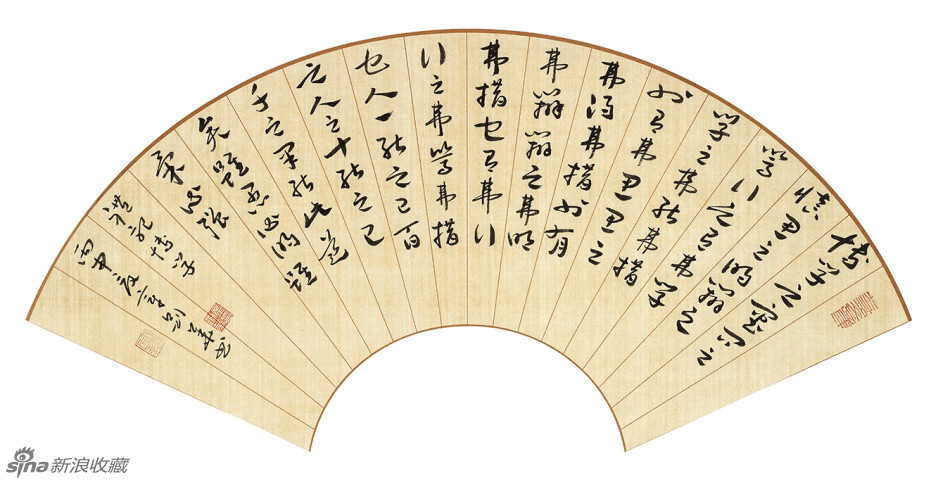 博学之審问之
慎思之明辯之
篤行之有弗学
学之弗能弗措
也有弗思思之
弗得弗措也有
弗辯辯之弗明
弗措也有弗行
行之弗篤弗措
也人一能之己百
之人之十能之己
千之果能此道
矣雖愚必明雖
柔必强
禮記博学
丙申夏
sina新浪收藏